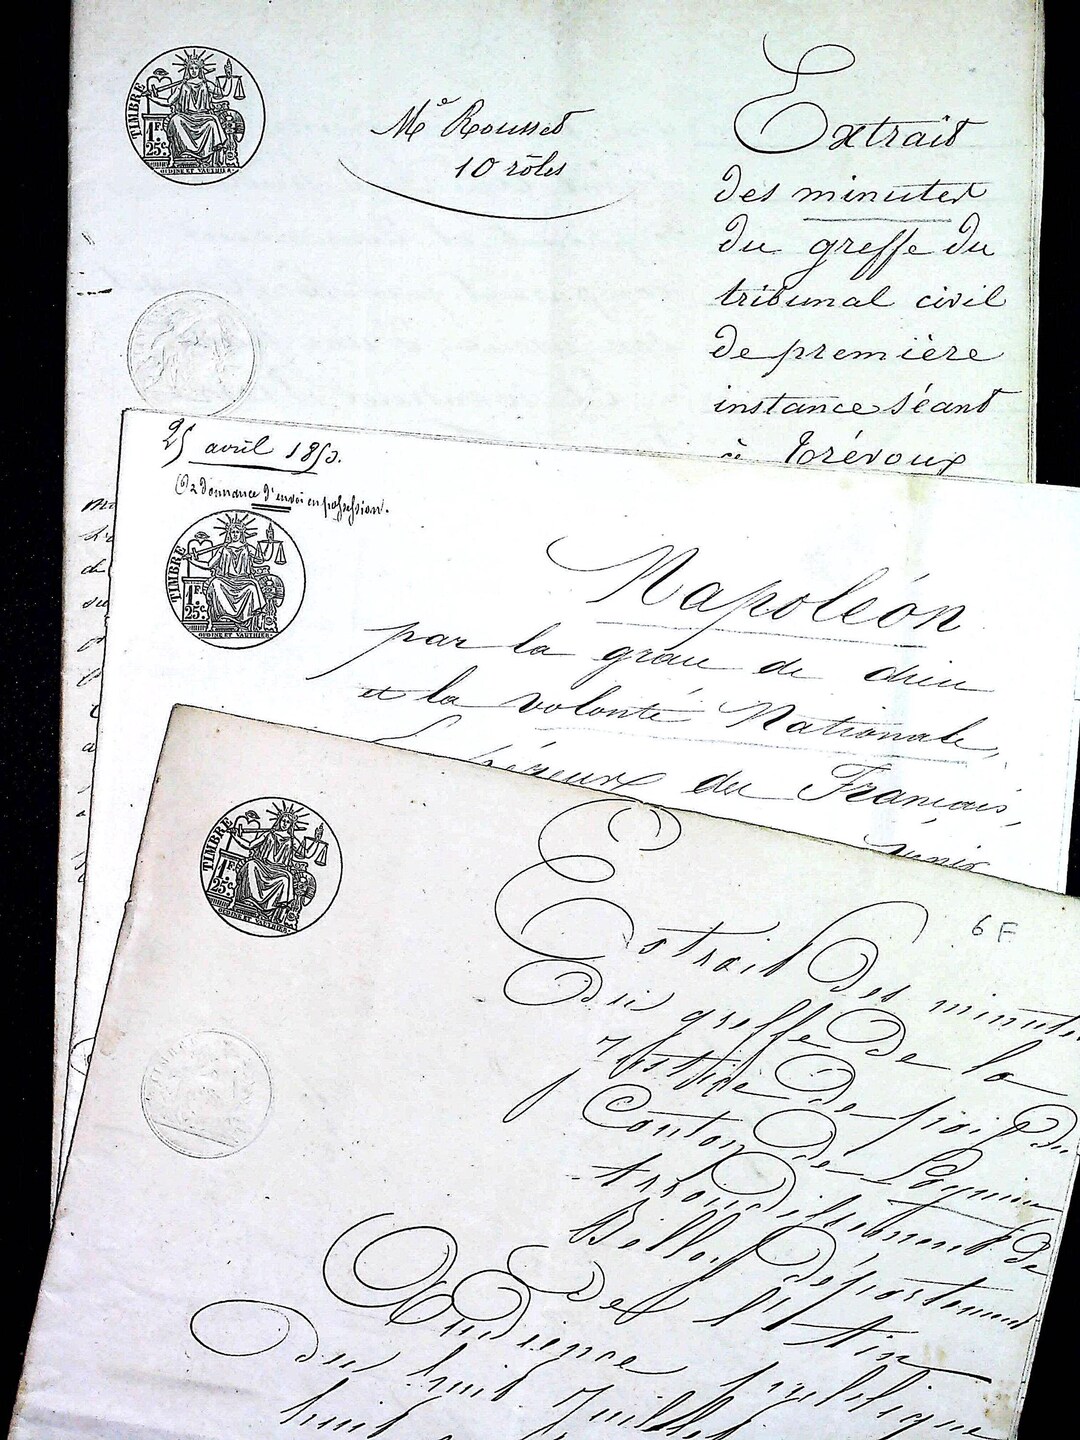 TIMBRE
1 F.
25 c.
OUDINE ET VAUTHIER.
Me Rousset
10 rôles
Extrait
des minutes
du greffe du
tribunal civil
de première
instance séant
à Trévoux
25 avril 1853.
Ordonnance d'envoi en possession.
TIMBRE
1 F.
25 c.
OUDINE ET VAUTHIER.
Napoléon
par la grace de dieu
et la volonté Nationale,
des Français,
venir
TIMBRE
1 F.
25 c.
OUDINE ET VAUTHIER.
6 F
Extrait des minutes
du greffe de la
justice de paix du
Canton de Lagnieu
arrondissement de
Belley département
de l'Ain
Audience publique
du huit Juillet
huit